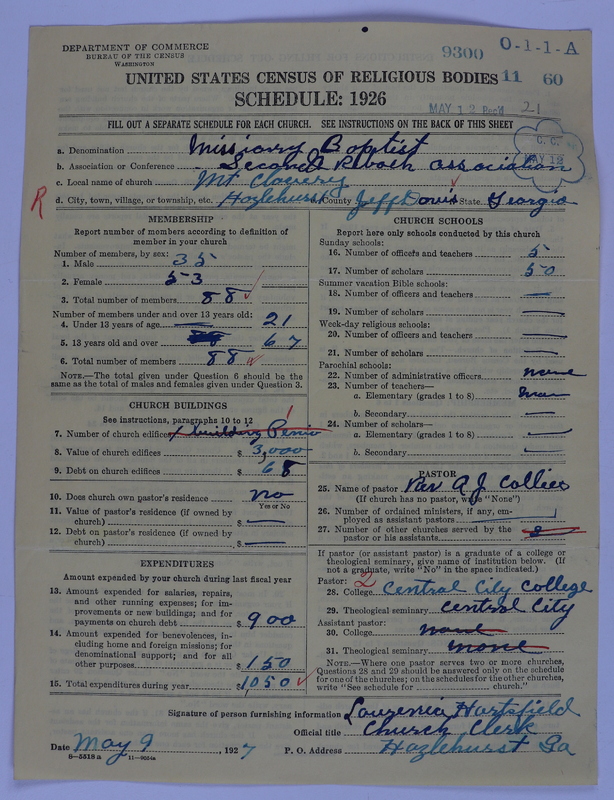 DEPARTMENT OF COMMERCE
BUREAU OF THE CENSUS
WASHINGTON
9300
O-1-1-A
UNITED STATES CENSUS OF RELIGIOUS BODIES
11 60
SCHEDULE: 1926
MAY 12 Rec'd 21
FILL OUT A SEPARATE SCHEDULE FOR EACH CHURCH. SEE INSTRUCTIONS ON THE BACK OF THIS SHEET
C. C.
MAY 12
a. Denomination Missionary Baptist
b. Association or Conference Second association
c. Local name of church Mt Clavery
d. City, town, village, or township, etc. Hazlehurst County Jeff Davis State Georgia
R
MEMBERSHIP
Report number of members according to definition of member in your church
Number of members, by sex:
1. Male 35
2. Female 53
3. Total number of members 88
Number of members under and over 13 years old:
4. Under 13 years of age 21
5. 13 years old and over 67
6. Total number of members 88
NOTE.—The total given under Question 6 should be the same as the total of males and females given under Question 3.
CHURCH BUILDINGS
See instructions, paragraphs 10 to 12
1
7. Number of church edifices 1 building
8. Value of church edifices $ 3,000
9. Debt on church edifices $ 68
10. Does church own pastor's residence no
Yes or No
11. Value of pastor's residence (if owned by church) $ —
12. Debt on pastor's residence (if owned by church) $ —
EXPENDITURES
Amount expended by your church during last fiscal year
13. Amount expended for salaries, repairs, and other running expenses; for improvements or new buildings; and for payments on church debt $ 900
14. Amount expended for benevolences, including home and foreign missions; for denominational support; and for all other purposes $ 150
15. Total expenditures during year $ 1050
CHURCH SCHOOLS
Report here only schools conducted by this church
Sunday schools:
16. Number of officers and teachers 5
17. Number of scholars 50
Summer vacation Bible schools:
18. Number of officers and teachers —
19. Number of scholars —
Week-day religious schools:
20. Number of officers and teachers —
21. Number of scholars —
Parochial schools:
22. Number of administrative officers none
23. Number of teachers—
a. Elementary (grades 1 to 8)
b. Secondary —
24. Number of scholars—
a. Elementary (grades 1 to 8) —
b. Secondary —
PASTOR
25. Name of pastor Rev A J Collier
(If church has no pastor, write "None")
26. Number of ordained ministers, if any, employed as assistant pastors —
27. Number of other churches served by the pastor or his assistants
If pastor (or assistant pastor) is a graduate of a college or theological seminary, give name of institution below. (If not a graduate, write "No" in the space indicated.)
Pastor: 2
28. College Central City College
29. Theological seminary Central City
Assistant pastor:
30. College none
31. Theological seminary none
NOTE.—Where one pastor serves two or more churches, Questions 28 and 29 should be answered only on the schedule for one of the churches; on the schedules for the other churches, write "See schedule for church."
Signature of person furnishing information Louzenia Hartsfield
Official title Church Clerk
Date May 9, 1927 P. O. Address Hazlehurst Ga
8—5518 a 11—9024a